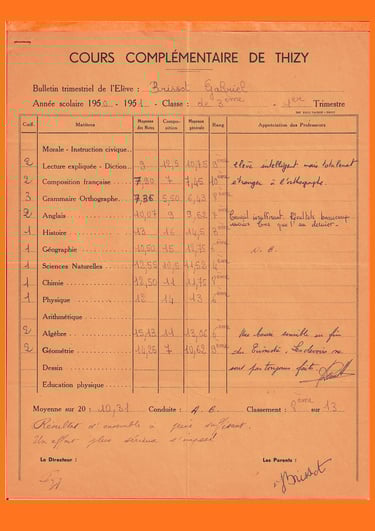 COURS COMPLÉMENTAIRE DE THIZY
Bulletin trimestriel de l'Elève : Brissot Gabriel
Année scolaire 1950 - 1951 - Classe : de 3ème 1er Trimestre
Coef. Matières Moyenne des Notes Composition Moyenne générale Rang Appréciation des Professeurs
Morale - Instruction civique
2 Lecture expliquée - Diction 9 12,5 10,75 élève intelligent mais totalement
2 Composition française 7,90 7 7,45 10ème étranger à l'orthographe.
3 Grammaire Orthographe 7,36 5,50 6,43
2 Anglais 10,07 9 9,52 Travail insuffisant. Résultats beaucoup
moins bons que l'an dernier.
1 Histoire 13 16 14,5
1 Géographie 10,50 15 12,75 A. B.
1 Sciences Naturelles 12,55 10,5 11,52
1 Chimie 12,50 11 11,75
1 Physique 12 14 13
Arithmétique
2 Algèbre 15,13 11 13,06 Une baisse sensible en fin
2 Géométrie 14,25 7 10,62 du trimestre. Les devoirs ne
Dessin sont pas toujours faits.
Education physique
Moyenne sur 20 : 10,31 Conduite : A. B. Classement : 9ème sur 13
Résultat d'ensemble à peine suffisant.
Un effort plus sérieux s'impose!
Le Directeur : Les Parents :
Brissot